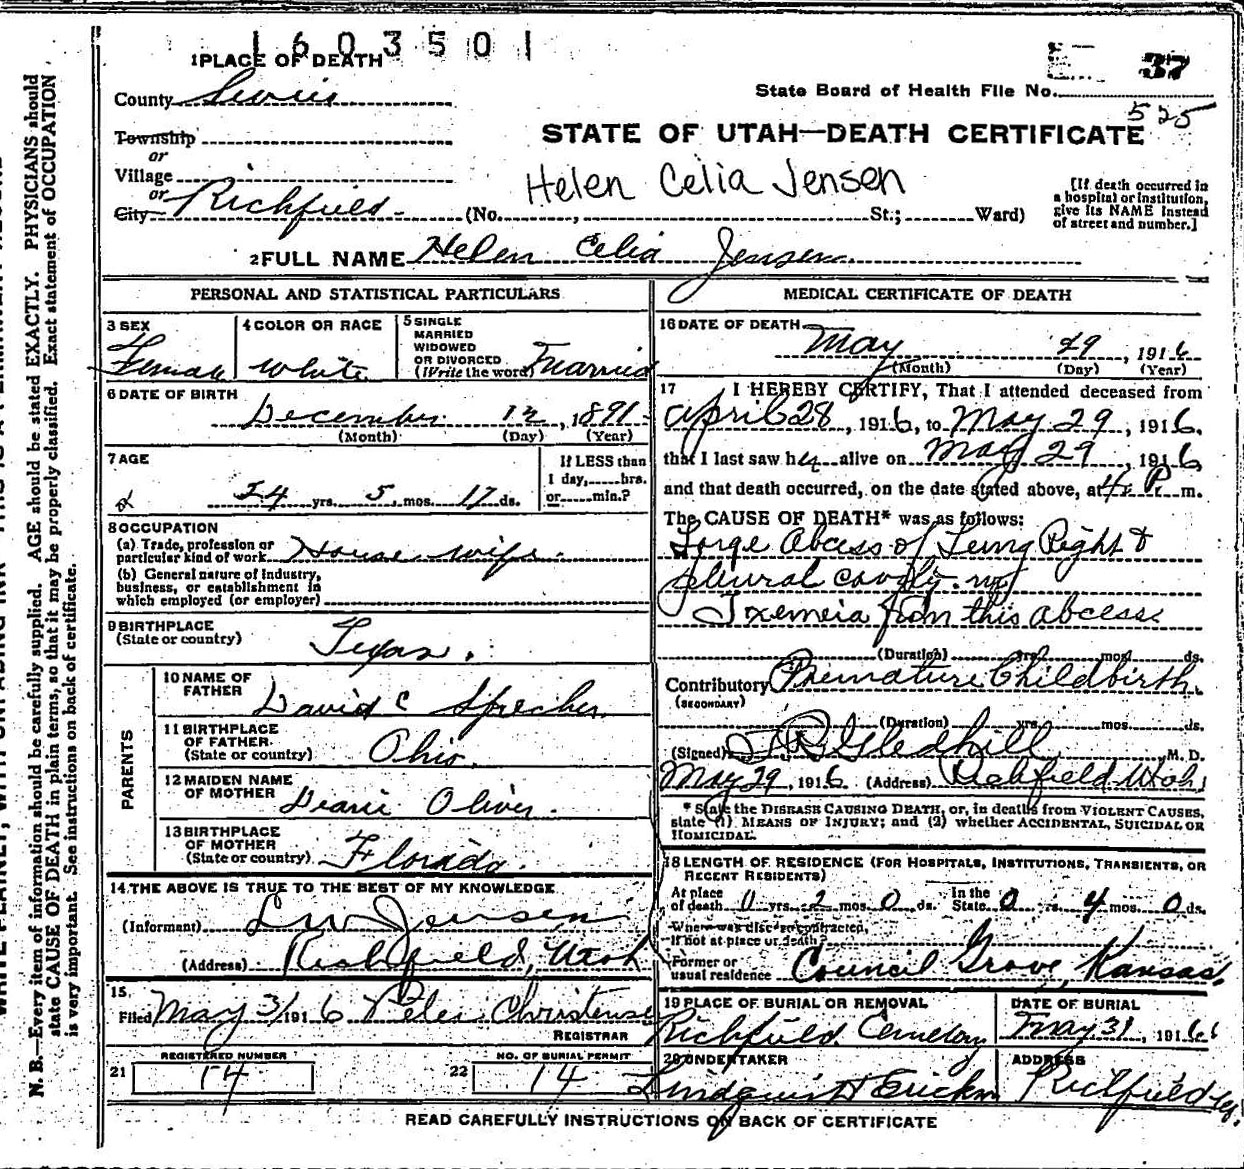 1603501
1 PLACE OF DEATH
37
State Board of Health File No.
525
County Sevier
Township
STATE OF UTAH—DEATH CERTIFICATE
or
Village
Helen Celia Jensen
or
City Richfield (No. , St.; Ward)
[If death occurred in
a hospital or institution,
give its NAME instead
of street and number.]
2 FULL NAME Helen Celia Jensen
PERSONAL AND STATISTICAL PARTICULARS
3 SEX
Female
4 COLOR OR RACE
White
5 SINGLE
MARRIED
WIDOWED
OR DIVORCED
(Write the word) Married
6 DATE OF BIRTH
December 12, 1891
(Month) (Day) (Year)
7 AGE
24 yrs. 5 mos. 17 ds.
If LESS than
1 day, hrs.
or min.?
8 OCCUPATION
(a) Trade, profession or
particular kind of work House wife
(b) General nature of industry,
business, or establishment in
which employed (or employer)
9 BIRTHPLACE
(State or country) Texas
PARENTS
10 NAME OF
FATHER David C Sprecher
11 BIRTHPLACE
OF FATHER
(State or country) Ohio
12 MAIDEN NAME
OF MOTHER Oliver
13 BIRTHPLACE
OF MOTHER
(State or country) Florida
14 THE ABOVE IS TRUE TO THE BEST OF MY KNOWLEDGE
(Informant) L W Jensen
(Address) Richfield, Utah
15
Filed May 31 1916 Peter Christensen
REGISTRAR
REGISTERED NUMBER
21 14
NO. OF BURIAL PERMIT
22 14
MEDICAL CERTIFICATE OF DEATH
16 DATE OF DEATH
May 29, 1916
(Month) (Day) (Year)
17 I HEREBY CERTIFY, That I attended deceased from
April 28, 1916, to May 29, 1916,
that I last saw her alive on May 29, 1916,
and that death occurred, on the date stated above, at 4 P. m.
The CAUSE OF DEATH* was as follows:
Large Abcess of Lung Right &
plural cavity.
Toxemeia from this abcess.
(Duration) yrs. mos. ds.
Contributory Premature Childbirth
(SECONDARY)
(Duration) yrs. mos. ds.
(Signed) Gledhill M. D.
May 29, 1916 (Address) Richfield Utah
* State the DISEASE CAUSING DEATH, or, in deaths from VIOLENT CAUSES,
state (1) MEANS OF INJURY; and (2) whether ACCIDENTAL, SUICIDAL OR
HOMICIDAL.
18 LENGTH OF RESIDENCE (FOR HOSPITALS, INSTITUTIONS, TRANSIENTS, OR
RECENT RESIDENTS)
At place
of death 0 yrs. 2 mos. 0 ds. In the State 0 yrs. 4 mos. 0 ds.
Where was disease contracted,
if not at place of death?
Former or
usual residence Council Grove, Kansas
19 PLACE OF BURIAL OR REMOVAL
Richfield Cemetery
DATE OF BURIAL
May 31, 1916
20 UNDERTAKER
ADDRESS
Richfield
READ CAREFULLY INSTRUCTIONS ON BACK OF CERTIFICATE
N. B.—Every item of information should be carefully supplied. AGE should be stated EXACTLY. PHYSICIANS should
state CAUSE OF DEATH in plain terms, so that it may be properly classified. Exact statement of OCCUPATION
is very important. See instructions on back of certificate.